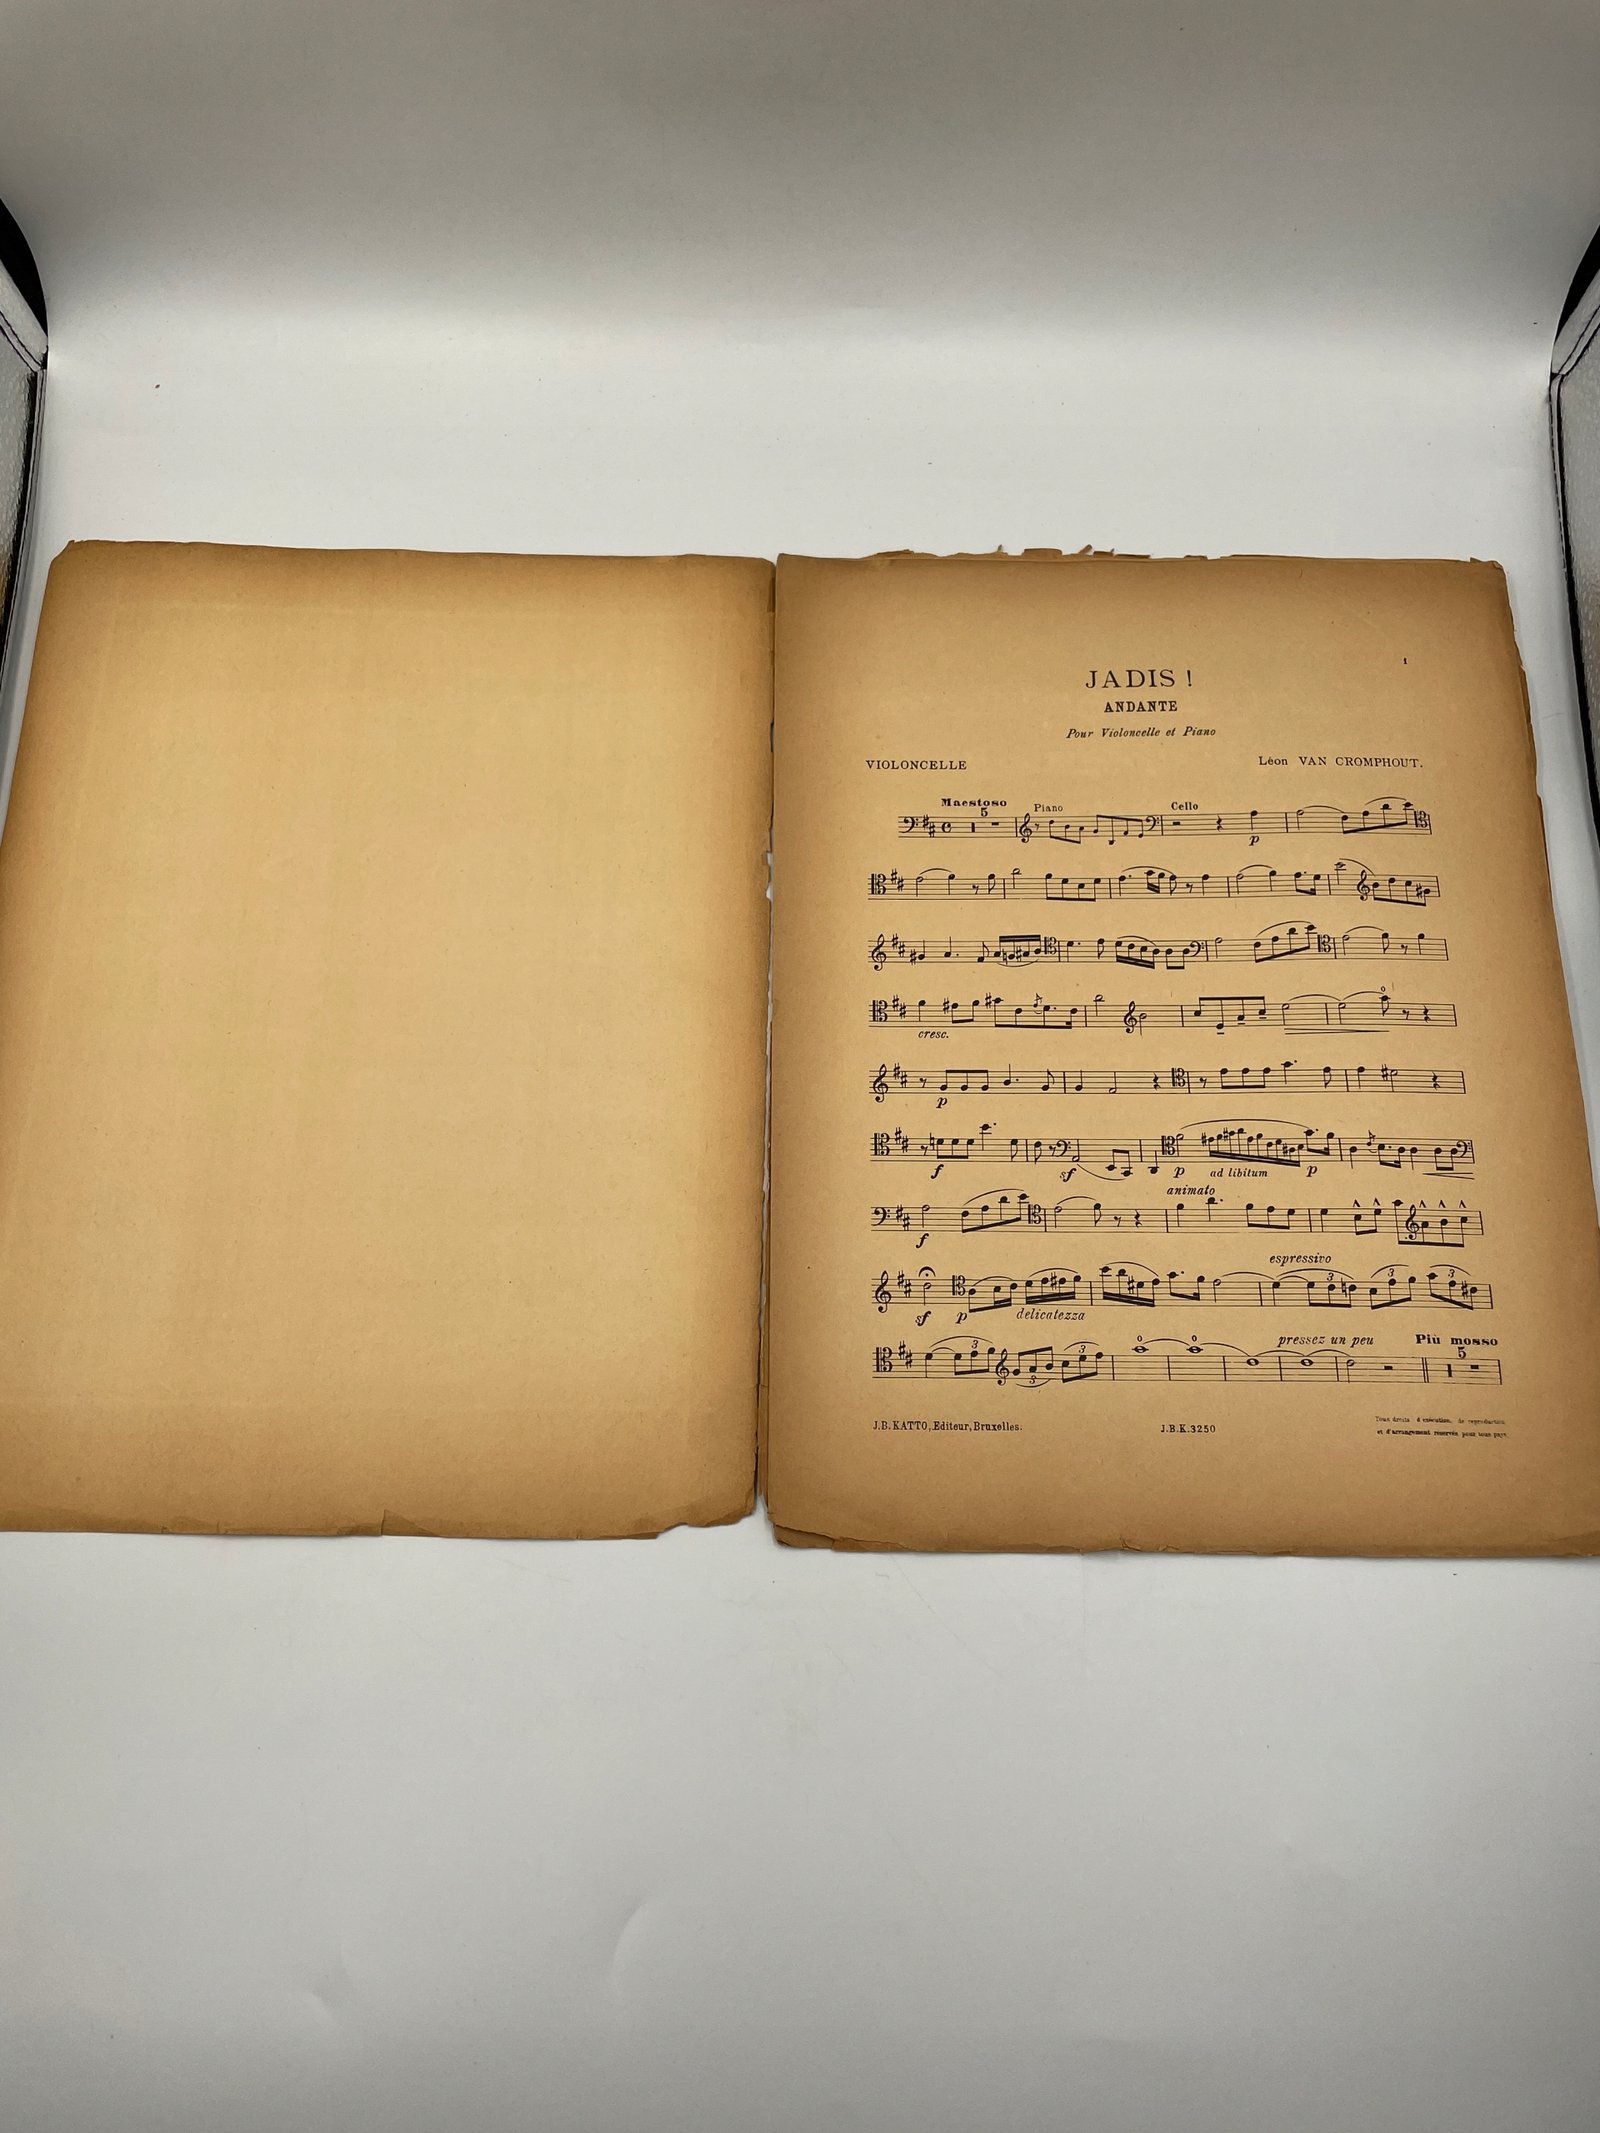 1
JADIS !
ANDANTE
Pour Violoncelle et Piano
VIOLONCELLE
Léon VAN CROMPHOUT.
Maestoso
5
Piano
Cello
p
cresc.
p
f sf p ad libitum p
animato
f
espressivo
sf p delicatezza
3 3 3
pressez un peu Più mosso
3 3 3 5
J.B. KATTO, Editeur, Bruxelles.
J.B.K. 3250
Tous droits d'exécution, de reproduction
et d'arrangement réservés pour tous pays